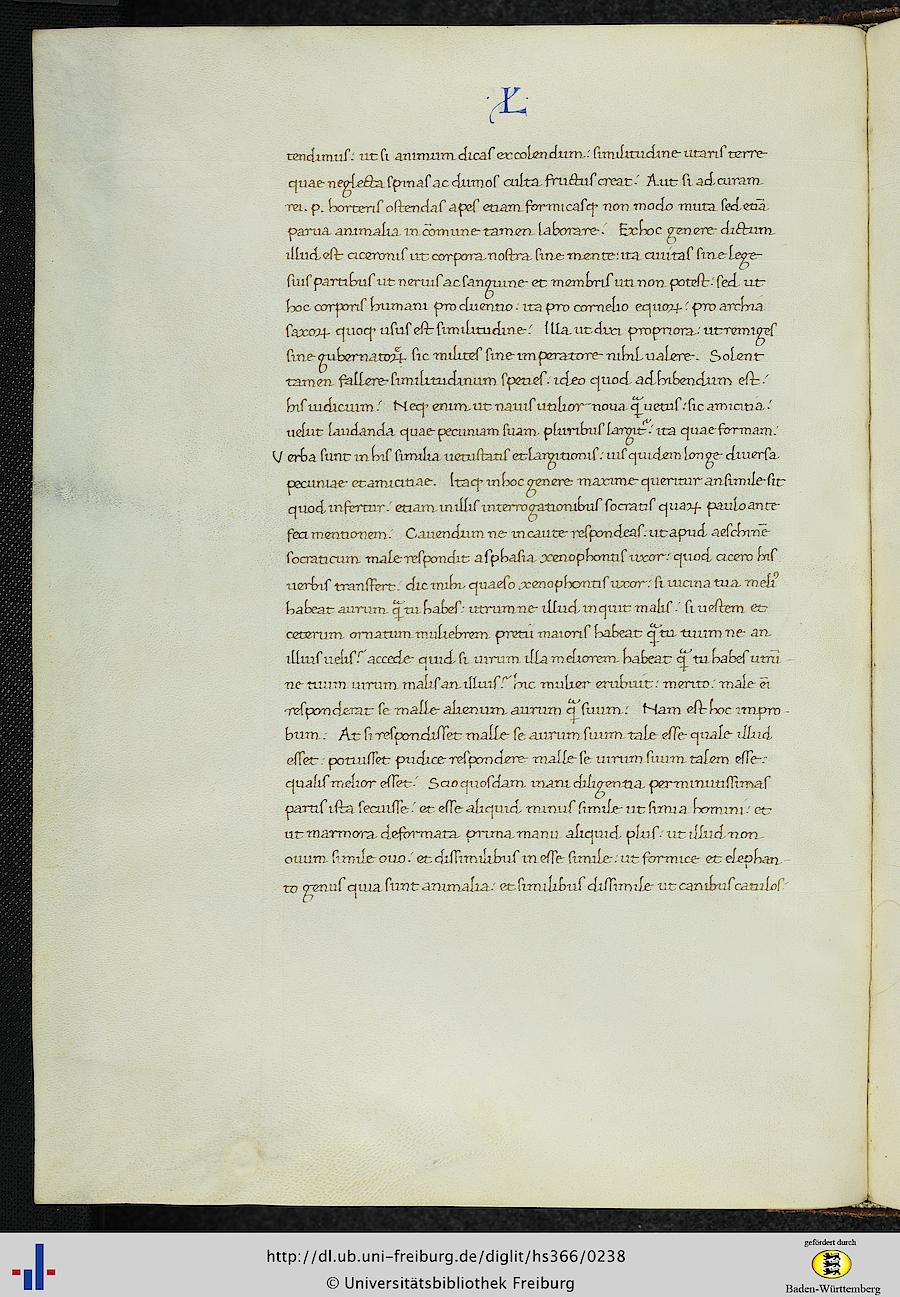 ·L·
tendimus: ut si animum dicas excolendum: similitudine utaris terre
quae neglecta spinas ac dumos culta fructus creat: Aut si ad curam
rei .p. horteris ostendas apes etiam formicasq; non modo muta sed etiā
parua animalia in cōmune tamen laborare: Ex hoc genere dictum
illud est ciceronis ut corpora nostra sine mente: ita ciuitas sine lege
suis partibus ut neruis ac sanguine et membris uti non potest: sed ut
hoc corporis humani pro cluentio: ita pro cornelio equoꝝ: pro archia
saxoꝝ quoq; usus est similitudine: Illa ut dixi propriora: ut remiges
sine gubernatorē. sic milites sine imperatore nihil ualere. Solent
tamen fallere similitudinum species: ideo quod adhibendum est:
his iudicium: Neq; enim ut nauis utilior noua q̄ uetus: sic amicitia:
uelut laudanda quae pecuniam suam pluribus largit᷑: ita quae formam:
Verba sunt in his similia uetustatis et largitionis: uis quidem longe diuersa
pecuniae et amicitiae. Itaq; in hoc genere maxime queritur an simile sit
quod infertur: etiam in illis interrogationibus socratis quaꝝ paulo ante
feci mentionem: Cauendum ne incaute respondeas: ut apud aeschinē
socraticum male respondit asphasia xenophontis uxor: quod cicero his
uerbis transfert: dic mihi quaeso xenophontis uxor: si uicina tua meliꝰ
habeat aurum q̄ tu habes: utrum ne illud inquit malis: si uestem et
ceterum ornatum muliebrem pretii maioris habeat q̄ tu tuum ne an
illius uelis? accede quid si uirum illa meliorem habeat q̄ tu habes utrū
ne tuum uirum malis an illius? hic mulier erubuit: merito: male eī
responderat se malle alienum aurum q̄ suum: Nam est hoc impro-
bum: At si respondisset malle se aurum suum tale esse quale illud
esset: potuisset pudice respondere malle se uirum suum talem esse:
qualis melior esset: Scio quosdam inani diligentia per minutissimas
partis ista secuisse: et esse aliquid minus simile ut simia homini: et
ut marmora deformata prima manu aliquid plus: ut illud non
ouum simile ouo: et dissimilibus in esse simile: ut formice et elephan-
to genus quia sunt animalia: et similibus dissimile ut canibus catulos
http://dl.ub.uni-freiburg.de/diglit/hs366/0238
© Universitätsbibliothek Freiburg
gefördert durch
Baden-Württemberg